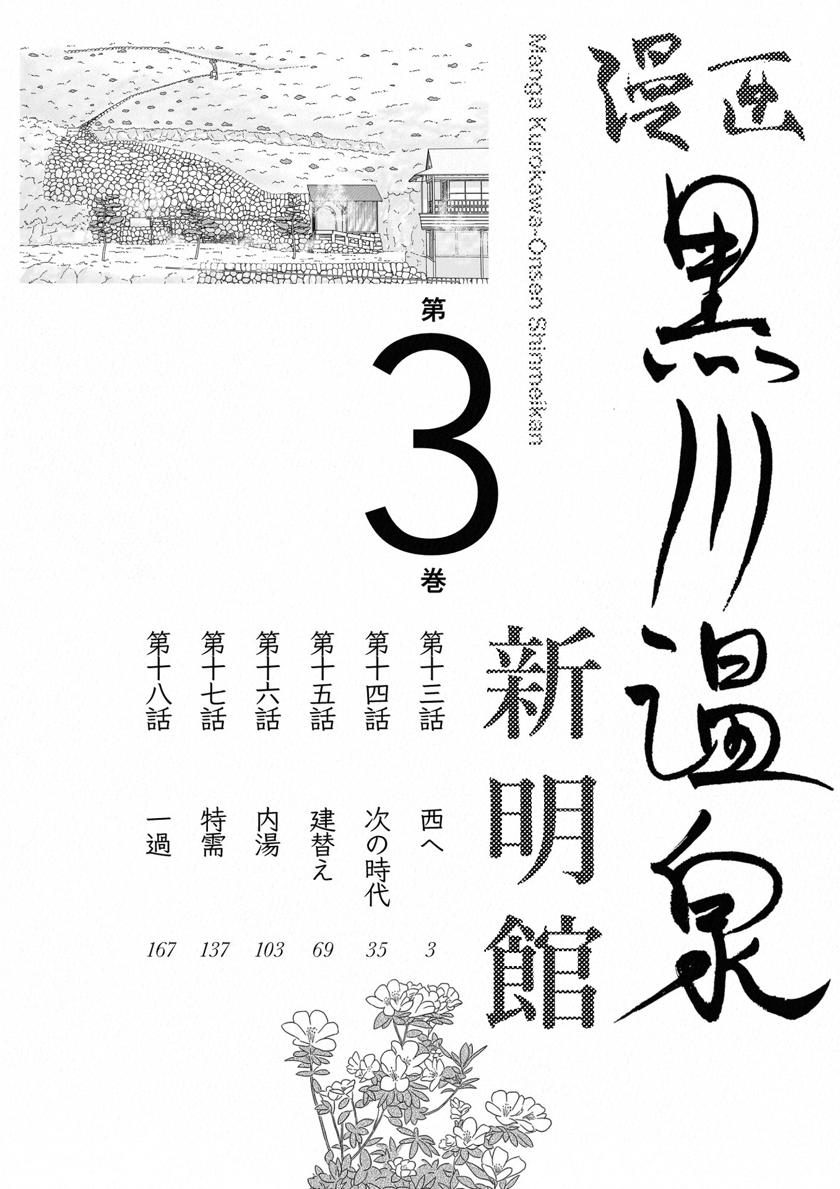 漫画
黒川温泉
新明館
Manga Kurokawa-Onsen Shinmeikan
第
3
巻
第十三話 西へ 3
第十四話 次の時代 35
第十五話 建替え 69
第十六話 内湯 103
第十七話 特需 137
第十八話 一過 167